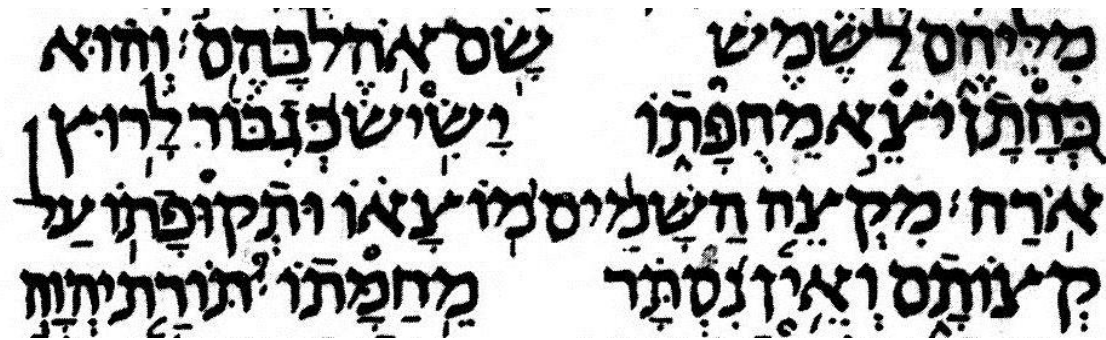 מִלֵּיהֶם לַשֶּׁמֶשׁ שָׂם אֹהֶל בָּהֶם׃ וְהוּא
כְּחָתָן יֹצֵא מֵחֻפָּתוֹ יָשִׂישׂ כְּגִבּוֹר לָרוּץ
אֹרַח׃ מִקְצֵה הַשָּׁמַיִם מוֹצָאוֹ וּתְקוּפָתוֹ עַל
קְצוֹתָם וְאֵין נִסְתָּר מֵחַמָּתוֹ׃ תּוֹרַת יְהוָה